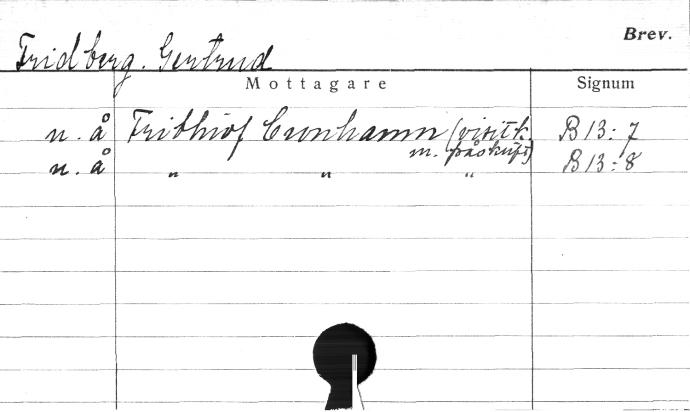 Brev.
Fridberg. Gertrud
Mottagare Signum
u. å Frithiof Cronhamn (visitk. B 13:7
m. påskrift)
u. å " " " B 13:8